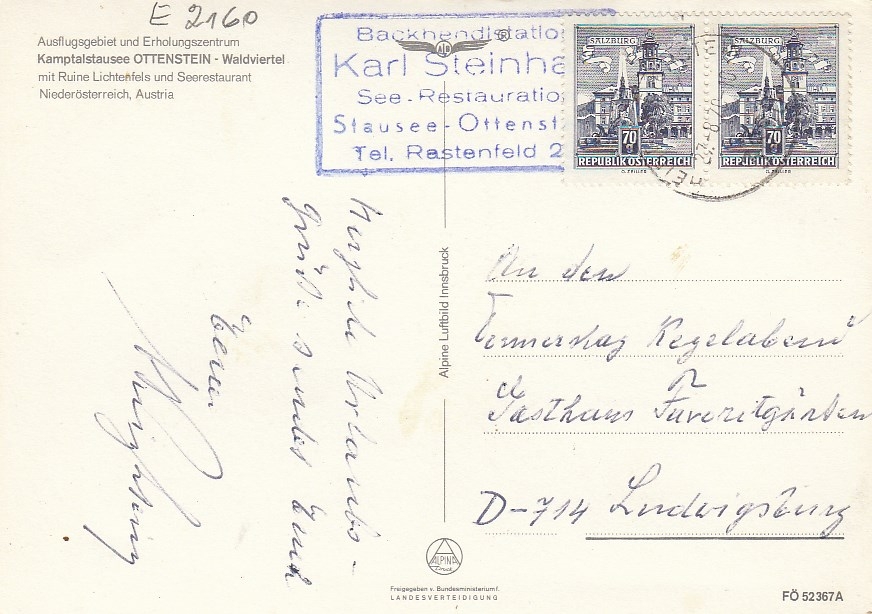 E 2160
Ausflugsgebiet und Erholungszentrum
Kamptalstausee OTTENSTEIN - Waldviertel
mit Ruine Lichtenfels und Seerestaurant
Niederösterreich, Austria
Backhendlstatio
Karl Steinha
See-Restauratio
Stausee-Ottenst
Tel. Rastenfeld 2
SALZBURG
70 g
REPUBLIK ÖSTERREICH
SALZBURG
70 g
REPUBLIK ÖSTERREICH
Herzliche Urlaubs-
grüße sendet Euch
Euer
Alpine Luftbild Innsbruck
An den
Kegelabend
Gasthaus Favoritgärten
D-714 Ludwigsburg
ALPINA
Druck
Freigegeben v. Bundesministerium f.
LANDESVERTEIDIGUNG
FÖ 52367A